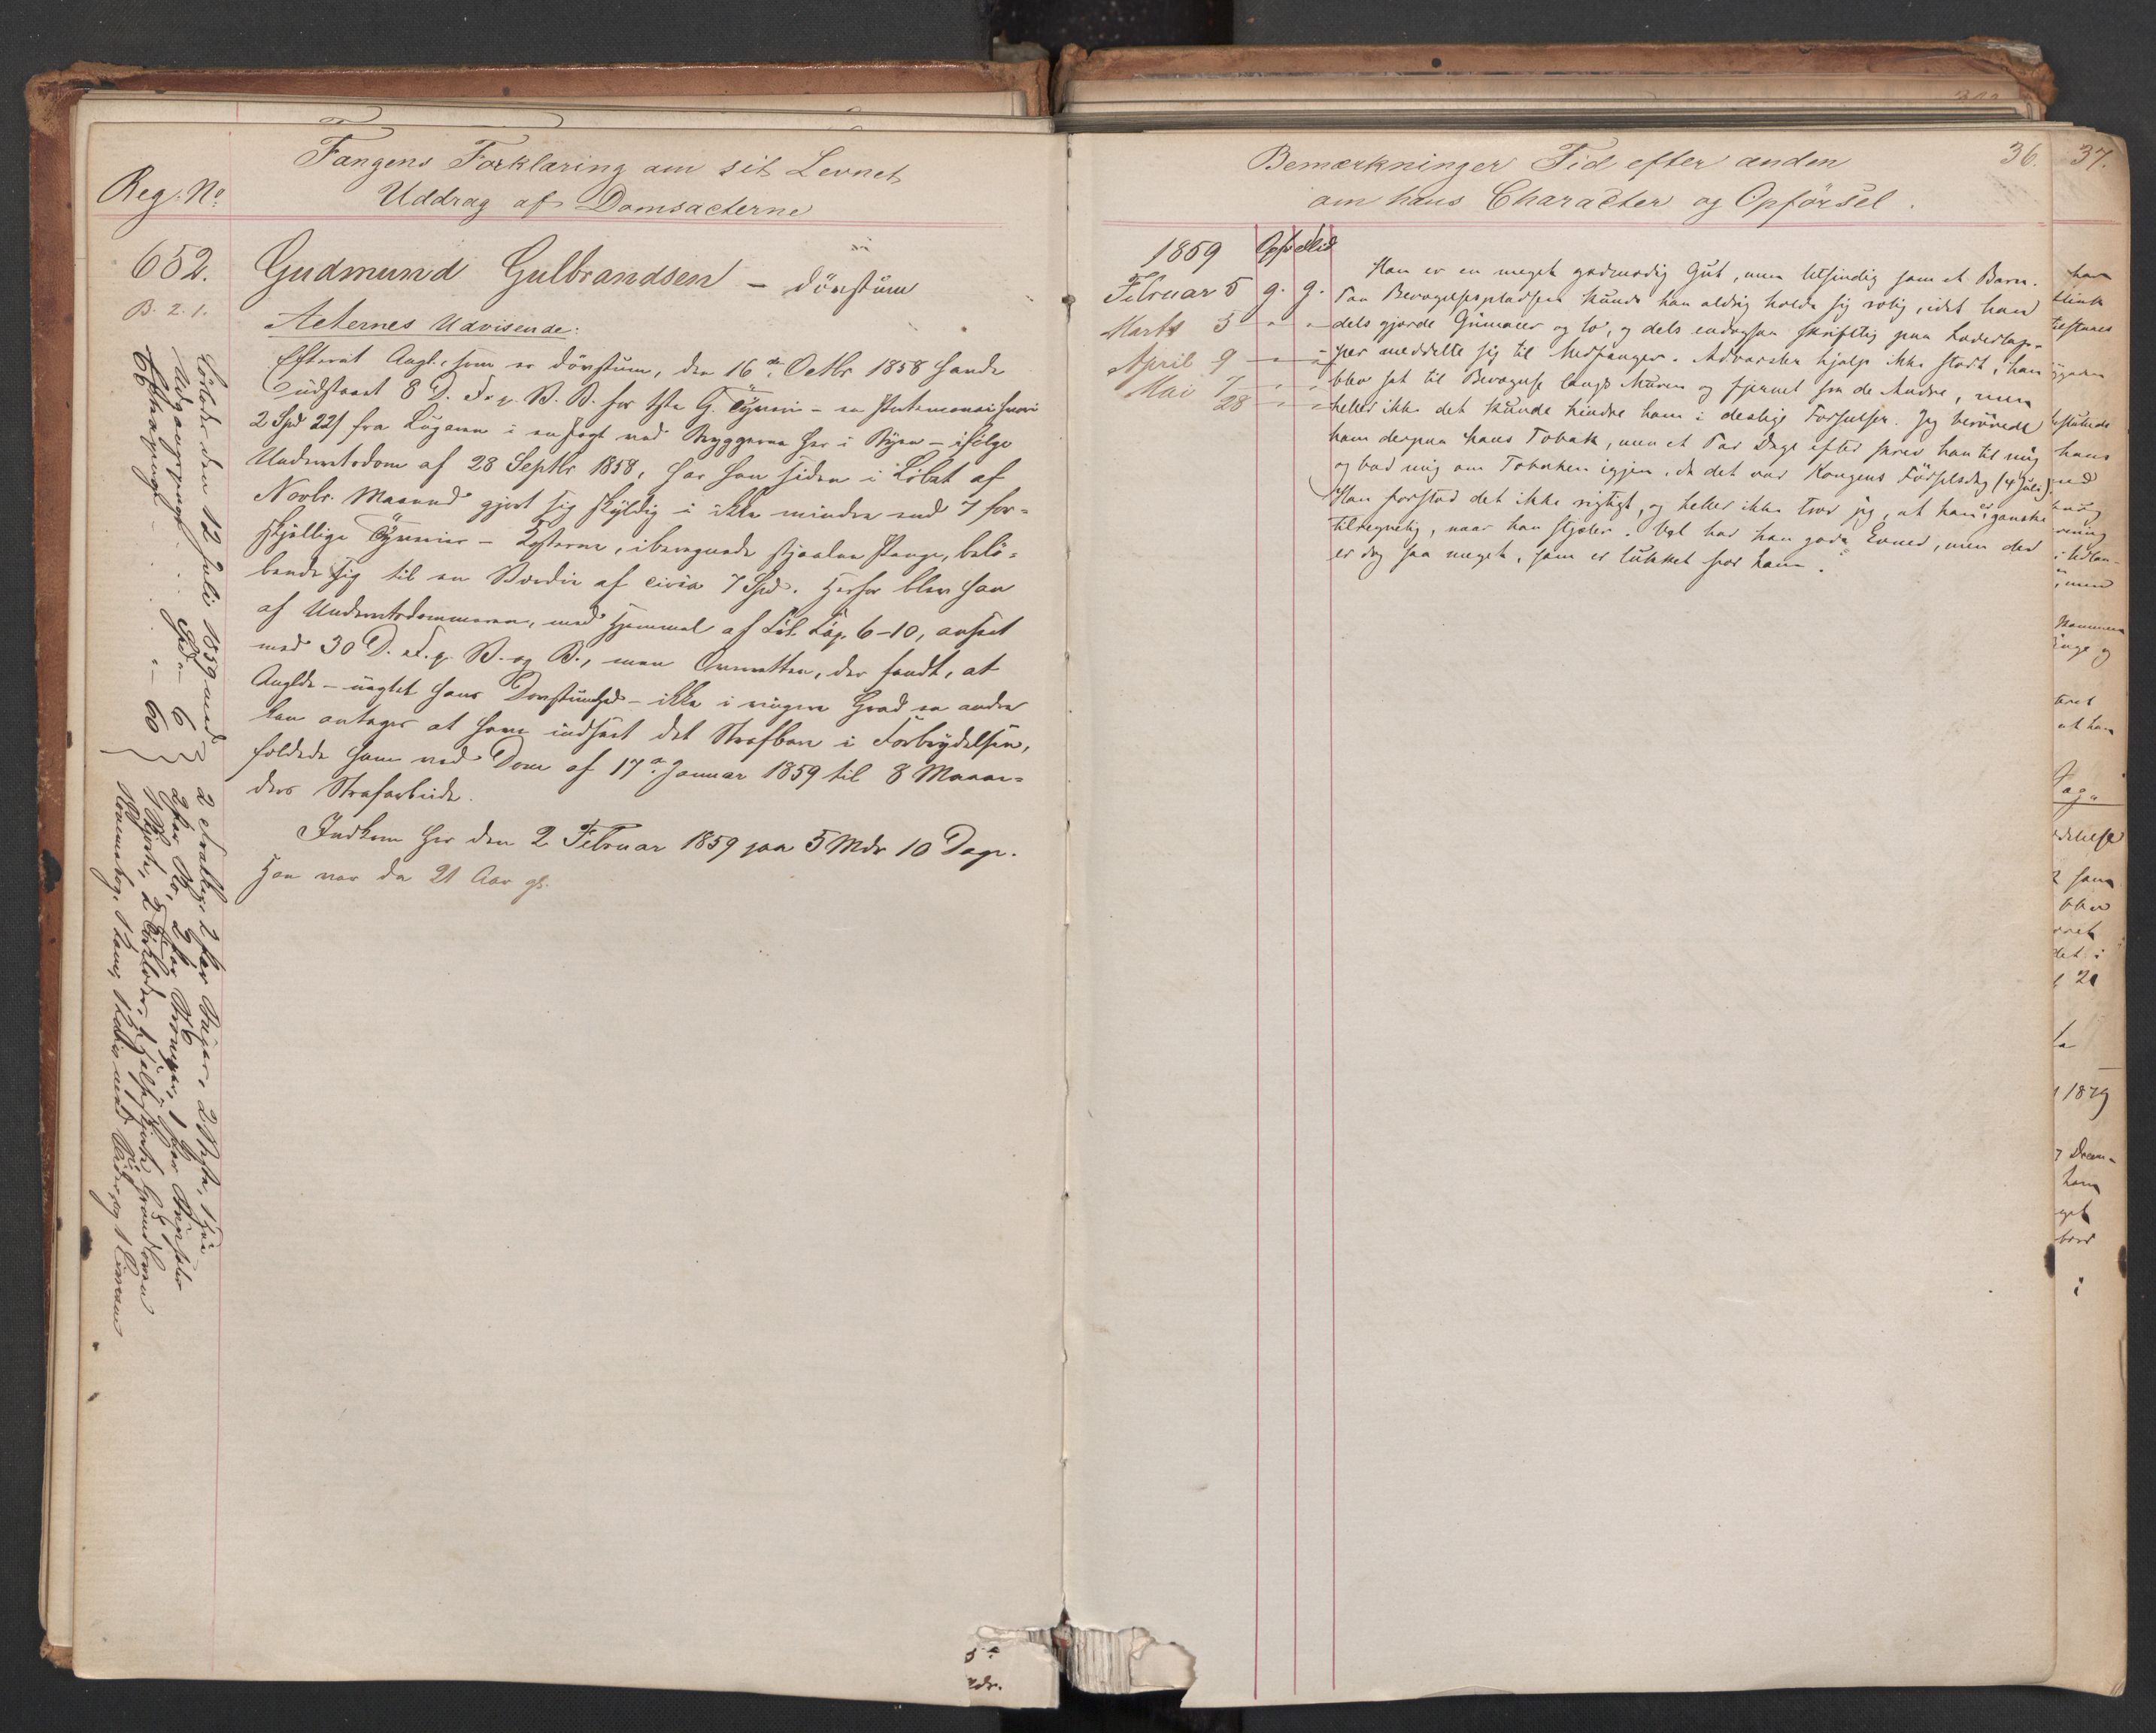 Fangens Forklaring om sit Levnet
Reg. No
Uddrag af Domsacterne
652.
Gudmund Gulbrandsen – døvstum
B. 2. 1.
Acternes Udvisende:
Efterat Anglt., som er døvstum, den 16de Octbr 1858 havde
udstaaet 8 D. F. p. V. B. for 1ste G. Tyveri – en Portemonai hvori
2 Spd 22 fra Lugaren i en Jagt ved Bryggerne her i Byen – ifølge
Underretsdom af 28 Septbr 1858, har han siden i Løbet af
Novbr. Maaned gjort sig skyldig i ikke mindre end 7 for-
skjellige Tyverier – Kosterne, iberegnede stjaalne Penge, belø-
bende sig til en Værdie af circa 7 Spd. Herfor blev han
af Underretsdommeren, med Hjemmel af Lov Kap. 6–10, anseet
med 30 D. F. p. V. og B., men Overretten, der fandt, at
Anglte – uagtet hans Døvstumhed – ikke i ringere Grad en andre
kan antages at have indseet det Strafbare i Forbrydelsen,
fældede ham ved Dom af 17de Januar 1859 til 8 Maane-
ders Strafarbeide.
Indkom her den 2 Februar 1859 paa 5 Mdr 10 Dage.
Han var da 21 Aar gl.
Løslades den 12 Juli 1859 med
Udgangspenge Spd – 6
– 60
2 par Buxer, 2 Veste, 1 Hue
2 par Sko, 2 par Strømper, 1 par Støvler
1 Skjorte, 2 Tørklæder, 1 halv
1 Kam
Bemærkninger Tid efter anden
om hans Character og Opførsel.
36.
37.
1859 Opfør Flid
Februar 5 g. g.
Marts 5 " "
April 9 " "
Mai 7 " "
28 " "
Han er en meget godmodig Gut, men letsindig som et Barn.
Paa Bevægelsespladsen kunde han aldrig holde sig rolig, idet han
dels gjorde Grimacer og lo, og dels endogsaa skriftlig paa Læderlap-
per meddelte sig til Medfanger. Advarsler hjalp ikke stort; han
blev sat til Bevægelse langs Muren og fjernet fra de Andre, men
heller ikke det kunde hindre ham i deslige Forseelser. Jeg berøvede
ham derpaa hans Tobak, men et Par Dage efter skrev han til mig
og bad mig om Tobakken igjen, da det var Kongens Fødselsdag (4 Juli).
Han forstod det ikke rigtigt, og heller ikke tror jeg, at han er ganske
tilregnelig, naar han stjæler. Vel har han gode Evner, men der
er dog saa meget, som er lukket for ham.